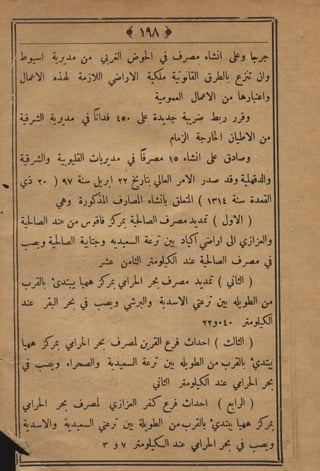 ﴿ ١٩٨ ﴾
جرجا وعلى انشاء مصرف في الحوض الغربي من مديرية اسيوط
وان تنزع بالطرق القانونية ملكية الاراضي اللازمة لهذه الاعمال
واعتبارها من الاعمال العمومية
وقرر ربط ضريبة جديدة على ٤٥٠ فداناً في مديرية الشرقية
من الاطيان الخارجة الزمام
وصادق على انشاء ١٥ مصرفاً في مديريات القليوبية والشرقية
والدقهلية وقد صدر الامر العالي بتاريخ ٢٢ ابريل سنة ٩٧ ( ٢٠ ذي
القعدة سنة ١٣١٤ ) المتعلق بانشاء المصارف المذكورة وهي
( الاول ) تمديد مصرف الصالحية بمركز فاقوس من عند الصالحية
والعزازي الى اراضي اكياد بين ترعة السعيدية وجنابية الصالحية ويصب
في مصرف الصالحية عند الكيلومتر الثامن عشر
( الثاني ) تمديد مصرف بحر الحرامي بمركز ههيا يبتدئ بالقرب
من الطويله بين ترعتي الاسدية والبرشي ويصب في بحر البقر عند
الكيلومتر ٢٢٫٠٤٠
( الثالث ) احداث فرع القرين لمصرف بحر الحرامي بمركز ههيا
يبتدئ بالقرب من الطويله بين ترعة السعيدية والصحراء ويصب في
بحر الحرامي عند الكيلومتر الثاني
( الرابع ) احداث فرع كفر العزازي لمصرف بحر الحرامي
بمركز ههيا يبتدئ بالقرب من الطويلة بين ترعتي السعيدية والاسدية
ويصب في بحر الحرامي عند الكيلومتر ٧ و ٣